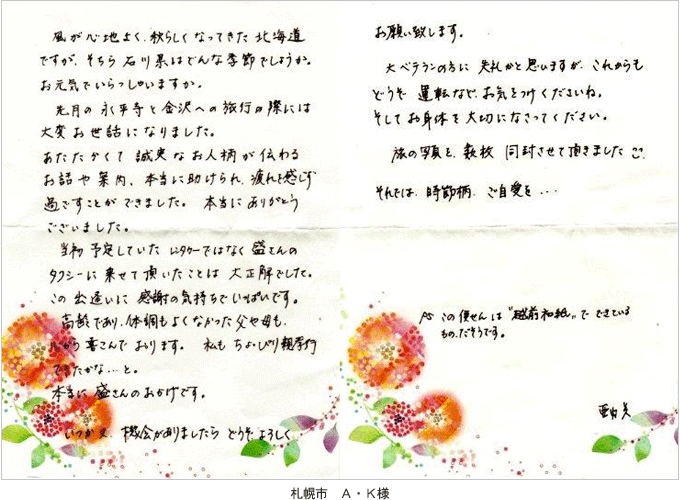 風が心地よく、秋らしくなってきた北海道
ですが、そちら石川県はどんな季節でしょうか。
お元気でいらっしゃいますか。
先月の永平寺と金沢への旅行の際には
大変お世話になりました。
あたたかくて誠実なお人柄が伝わる
お話や案内、本当に助けられ、疲れを感じず
過ごすことができました。本当にありがとう
ございました。
当初予定していたレンタカーではなく盛さんの
タクシーに乗せて頂いたことは大正解でした。
この出逢いに感謝の気持ちでいっぱいです。
高齢であり、体調もよくなかった父や母も、
心から喜こんでおります。私もちょぴり親孝行
できたかな…と。
本当に盛さんのおかげです。
いつか又、機会がありましたらどうぞよろしく
お願い致します。
大ベテランの方に失礼かと思いますが、これからも
どうぞ運転など、お気をつけくださいね。
そしてお身体を大切になさってください。
旅の写真を、数枚、同封させて頂きました
それでは、時節柄、ご自愛を…
PS この便せんは"越前和紙"でできている
ものだそうです。
札幌市 A・K様